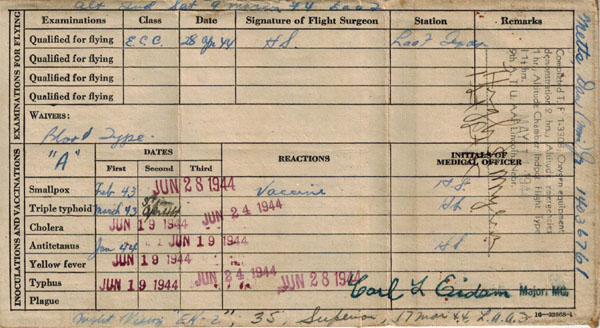 Alt Ind Sat 9 March 44 Laaf
EXAMINATIONS FOR FLYING
Examinations Class Date Signature of Flight Surgeon Station Remarks
Qualified for flying E.C.C. 44 HS
Qualified for flying
Qualified for flying
Qualified for flying
WAIVERS:
Blood Type.
"A"
INOCULATIONS AND VACCINATIONS
DATES REACTIONS INITIALS OF MEDICAL OFFICER
First Second Third
Smallpox Feb 43 JUN 28 1944 Vaccine HS
Triple typhoid March 43 JUN 24 1944
Cholera JUN 19 1944
Antitetanus Jan 44 JUN 19 1944 HS
Yellow fever JUN 19 1944
Typhus JUN 19 1944 JUN 24 1944 JUN 28 1944
Plague
Carl L Eidam Major: MC.
Night Vision "EA-2"; 35, Superior 17 Mar 44, L.A.A.F.
16—32868-1
Completed T. F. 1-3305 Oxygen equipment
demonstration 2 hrs., Altitude
1 hr. Altitude Chamber Indoc. Flight Type
MAY
14036761